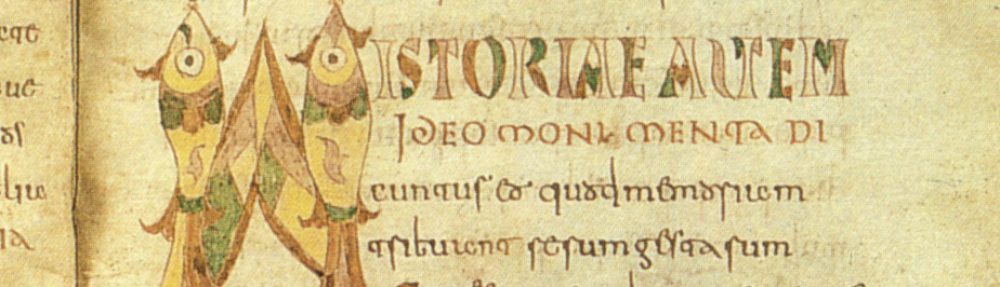 HISTORIAE AUTEM
IDEO MONIMENTA DI
cuntur eo quod memoriam
tribuant rerum gestarum